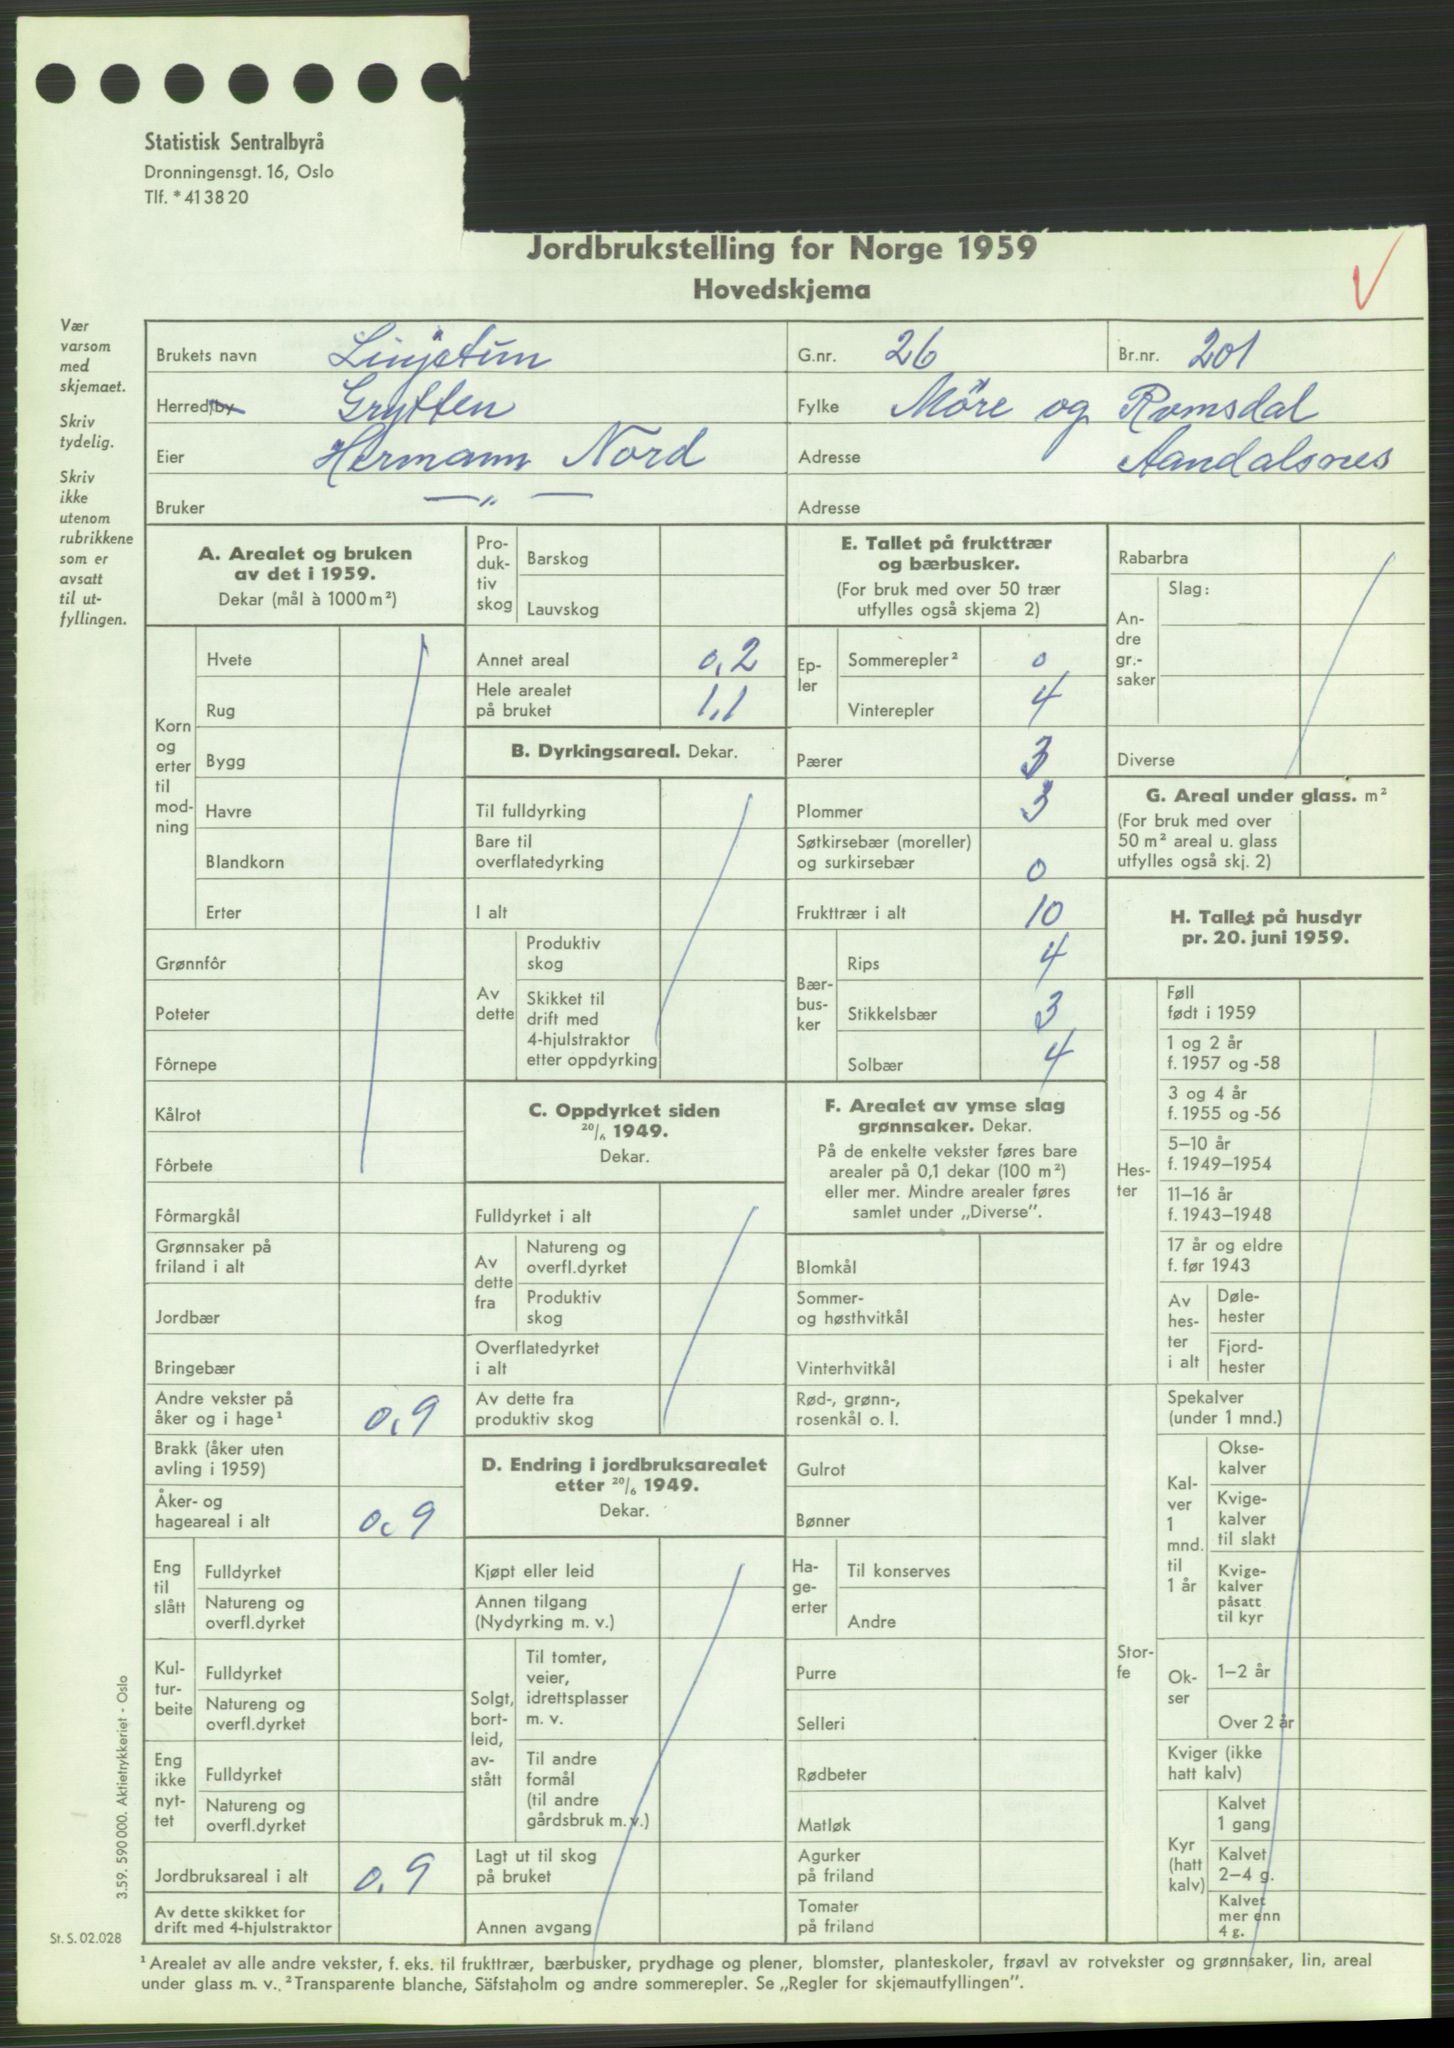 Statistisk Sentralbyrå
Dronningensgt. 16, Oslo
Tlf. * 41 38 20
Jordbrukstelling for Norge 1959
Hovedskjema
Vær
varsom
med
skjemaet.
Skriv
tydelig.
Skriv
ikke
utenom
rubrikkene
som er
avsatt
til ut-
fyllingen.
Brukets navn Linjetun G.nr. 26 Br.nr. 201
Herred/by Grytten Fylke Möre og Romsdal
Eier Hermann Nord Adresse Aandalsnes
Bruker — „ — Adresse
A. Arealet og bruken
av det i 1959.
Dekar (mål à 1000 m²)
Korn
og
erter
til
mod-
ning
Hvete
Rug
Bygg
Havre
Blandkorn
Erter
Grønnfôr
Poteter
Fôrnepe
Kålrot
Fôrbete
Fôrmargkål
Grønnsaker på
friland i alt
Jordbær
Bringebær
Andre vekster på
åker og i hage¹ 0,9
Brakk (åker uten
avling i 1959)
Åker- og
hageareal i alt 0,9
Eng
til
slått
Fulldyrket
Natureng og
overfl.dyrket
Kul-
tur-
beite
Fulldyrket
Natureng og
overfl.dyrket
Eng
ikke
nyt-
tet
Fulldyrket
Natureng og
overfl.dyrket
Jordbruksareal i alt 0,9
Av dette skikket for
drift med 4-hjulstraktor
Pro-
duk-
tiv
skog
Barskog
Lauvskog
Annet areal 0,2
Hele arealet
på bruket 1,1
B. Dyrkingsareal. Dekar.
Til fulldyrking
Bare til
overflatedyrking
I alt
Av
dette
Produktiv
skog
Skikket til
drift med
4-hjulstraktor
etter oppdyrking
C. Oppdyrket siden
20/6 1949.
Dekar.
Fulldyrket i alt
Av
dette
fra
Natureng og
overfl.dyrket
Produktiv
skog
Overflatedyrket
i alt
Av dette fra
produktiv skog
D. Endring i jordbruksarealet
etter 20/6 1949.
Dekar.
Kjøpt eller leid
Annen tilgang
(Nydyrking m. v.)
Solgt,
bort-
leid,
av-
stått
Til tomter,
veier,
idrettsplasser
m. v.
Til andre
formål
(til andre
gårdsbruk m. v.)
Lagt ut til skog
på bruket
Annen avgang
E. Tallet på frukttrær
og bærbusker.
(For bruk med over 50 trær
utfylles også skjema 2)
Ep-
ler
Sommerepler² 0
Vinterepler 4
Pærer 3
Plommer 3
Søtkirsebær (moreller)
og surkirsebær 0
Frukttrær i alt 10
Bær-
bus-
ker
Rips 4
Stikkelsbær 3
Solbær 4
F. Arealet av ymse slag
grønnsaker. Dekar.
På de enkelte vekster føres bare
arealer på 0,1 dekar (100 m²)
eller mer. Mindre arealer føres
samlet under „Diverse”.
Blomkål
Sommer-
og høsthvitkål
Vinterhvitkål
Rød-, grønn-,
rosenkål o. l.
Gulrot
Bønner
Ha-
ge-
erter
Til konserves
Andre
Purre
Selleri
Rødbeter
Matløk
Agurker
på friland
Tomater
på friland
Rabarbra
An-
dre
gr.-
saker
Slag:
Diverse
G. Areal under glass. m²
(For bruk med over
50 m² areal u. glass
utfylles også skj. 2)
H. Tallet på husdyr
pr. 20. juni 1959.
Hes-
ter
Føll
født i 1959
1 og 2 år
f. 1957 og -58
3 og 4 år
f. 1955 og -56
5–10 år
f. 1949–1954
11–16 år
f. 1943–1948
17 år og eldre
f. før 1943
Av
hes-
ter
i alt
Døle-
hester
Fjord-
hester
Stor-
fe
Spekalver
(under 1 mnd.)
Kal-
ver
1
mnd.
til
1 år
Okse-
kalver
Kvige-
kalver
til slakt
Kvige-
kalver
påsatt
til kyr
Ok-
ser
1–2 år
Over 2 år
Kviger (ikke
hatt kalv)
Kyr
(hatt
kalv)
Kalvet
1 gang
Kalvet
2–4 g.
Kalvet
mer enn
4 g.
3.59. 590 000. Aktietrykkeriet - Oslo
St. S. 02.028
¹ Arealet av alle andre vekster, f. eks. til frukttrær, bærbusker, prydhage og plener, blomster, planteskoler, frøavl av rotvekster og grønnsaker, lin, areal
under glass m. v. ² Transparente blanche, Säfstaholm og andre sommerepler. Se „Regler for skjemautfyllingen”.